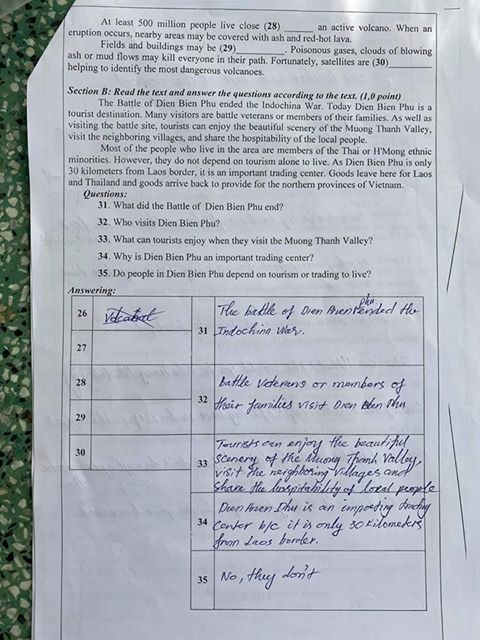 At least 500 million people live close (28) __________ an active volcano. When an
eruption occurs, nearby areas may be covered with ash and red-hot lava.
Fields and buildings may be (29) __________. Poisonous gases, clouds of blowing
ash or mud flows may kill everyone in their path. Fortunately, satellites are (30) __________
helping to identify the most dangerous volcanoes.
Section B: Read the text and answer the questions according to the text. (1,0 point)
The Battle of Dien Bien Phu ended the Indochina War. Today Dien Bien Phu is a
tourist destination. Many visitors are battle veterans or members of their families. As well as
visiting the battle site, tourists can enjoy the beautiful scenery of the Muong Thanh Valley,
visit the neighboring villages, and share the hospitability of the local people.
Most of the people who live in the area are members of the Thai or H'Mong ethnic
minorities. However, they do not depend on tourism alone to live. As Dien Bien Phu is only
30 kilometers from Laos border, it is an important trading center. Goods leave here for Laos
and Thailand and goods arrive back to provide for the northern provinces of Vietnam.
Questions:
31. What did the Battle of Dien Bien Phu end?
32. Who visits Dien Bien Phu?
33. What can tourists enjoy when they visit the Muong Thanh Valley?
34. Why is Dien Bien Phu an important trading center?
35. Do people in Dien Bien Phu depend on tourism or trading to live?
Answering:
26
27
28
29
30
31 The battle of Dien Bien Phu ended the
Indochina War.
32 Battle Veterans or members of
their families visit Dien Bien Phu
33 Tourists can enjoy the beautiful
scenery of the Muong Thanh Valley,
visit the neighboring villages and
share the hospitability of local people
34 Dien Bien Phu is an trading
center b/c it is only 30 kilometers
from Laos border.
35 No, they don't